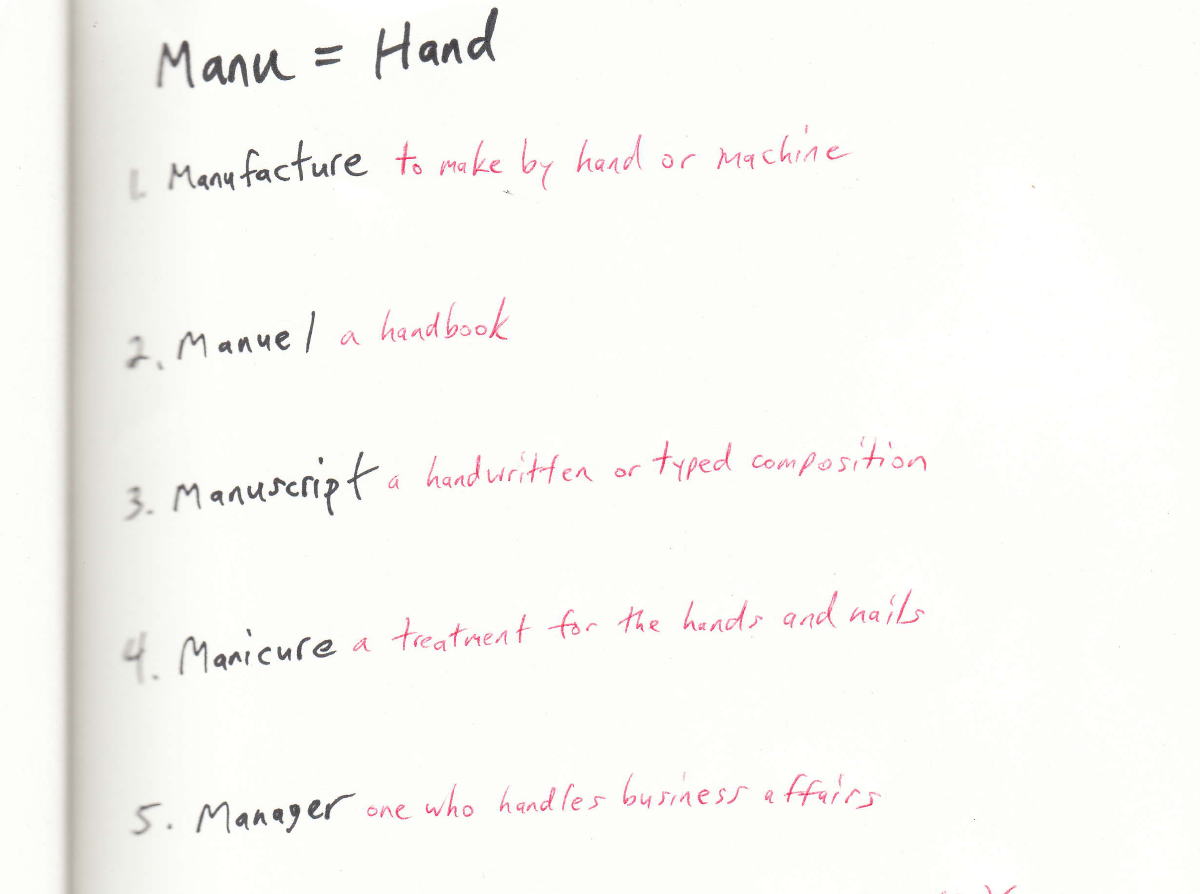 Manu = Hand
1. Manufacture to make by hand or machine
2. Manuel a handbook
3. Manuscript a handwritten or typed composition
4. Manicure a treatment for the hands and nails
5. Manager one who handles business affairs